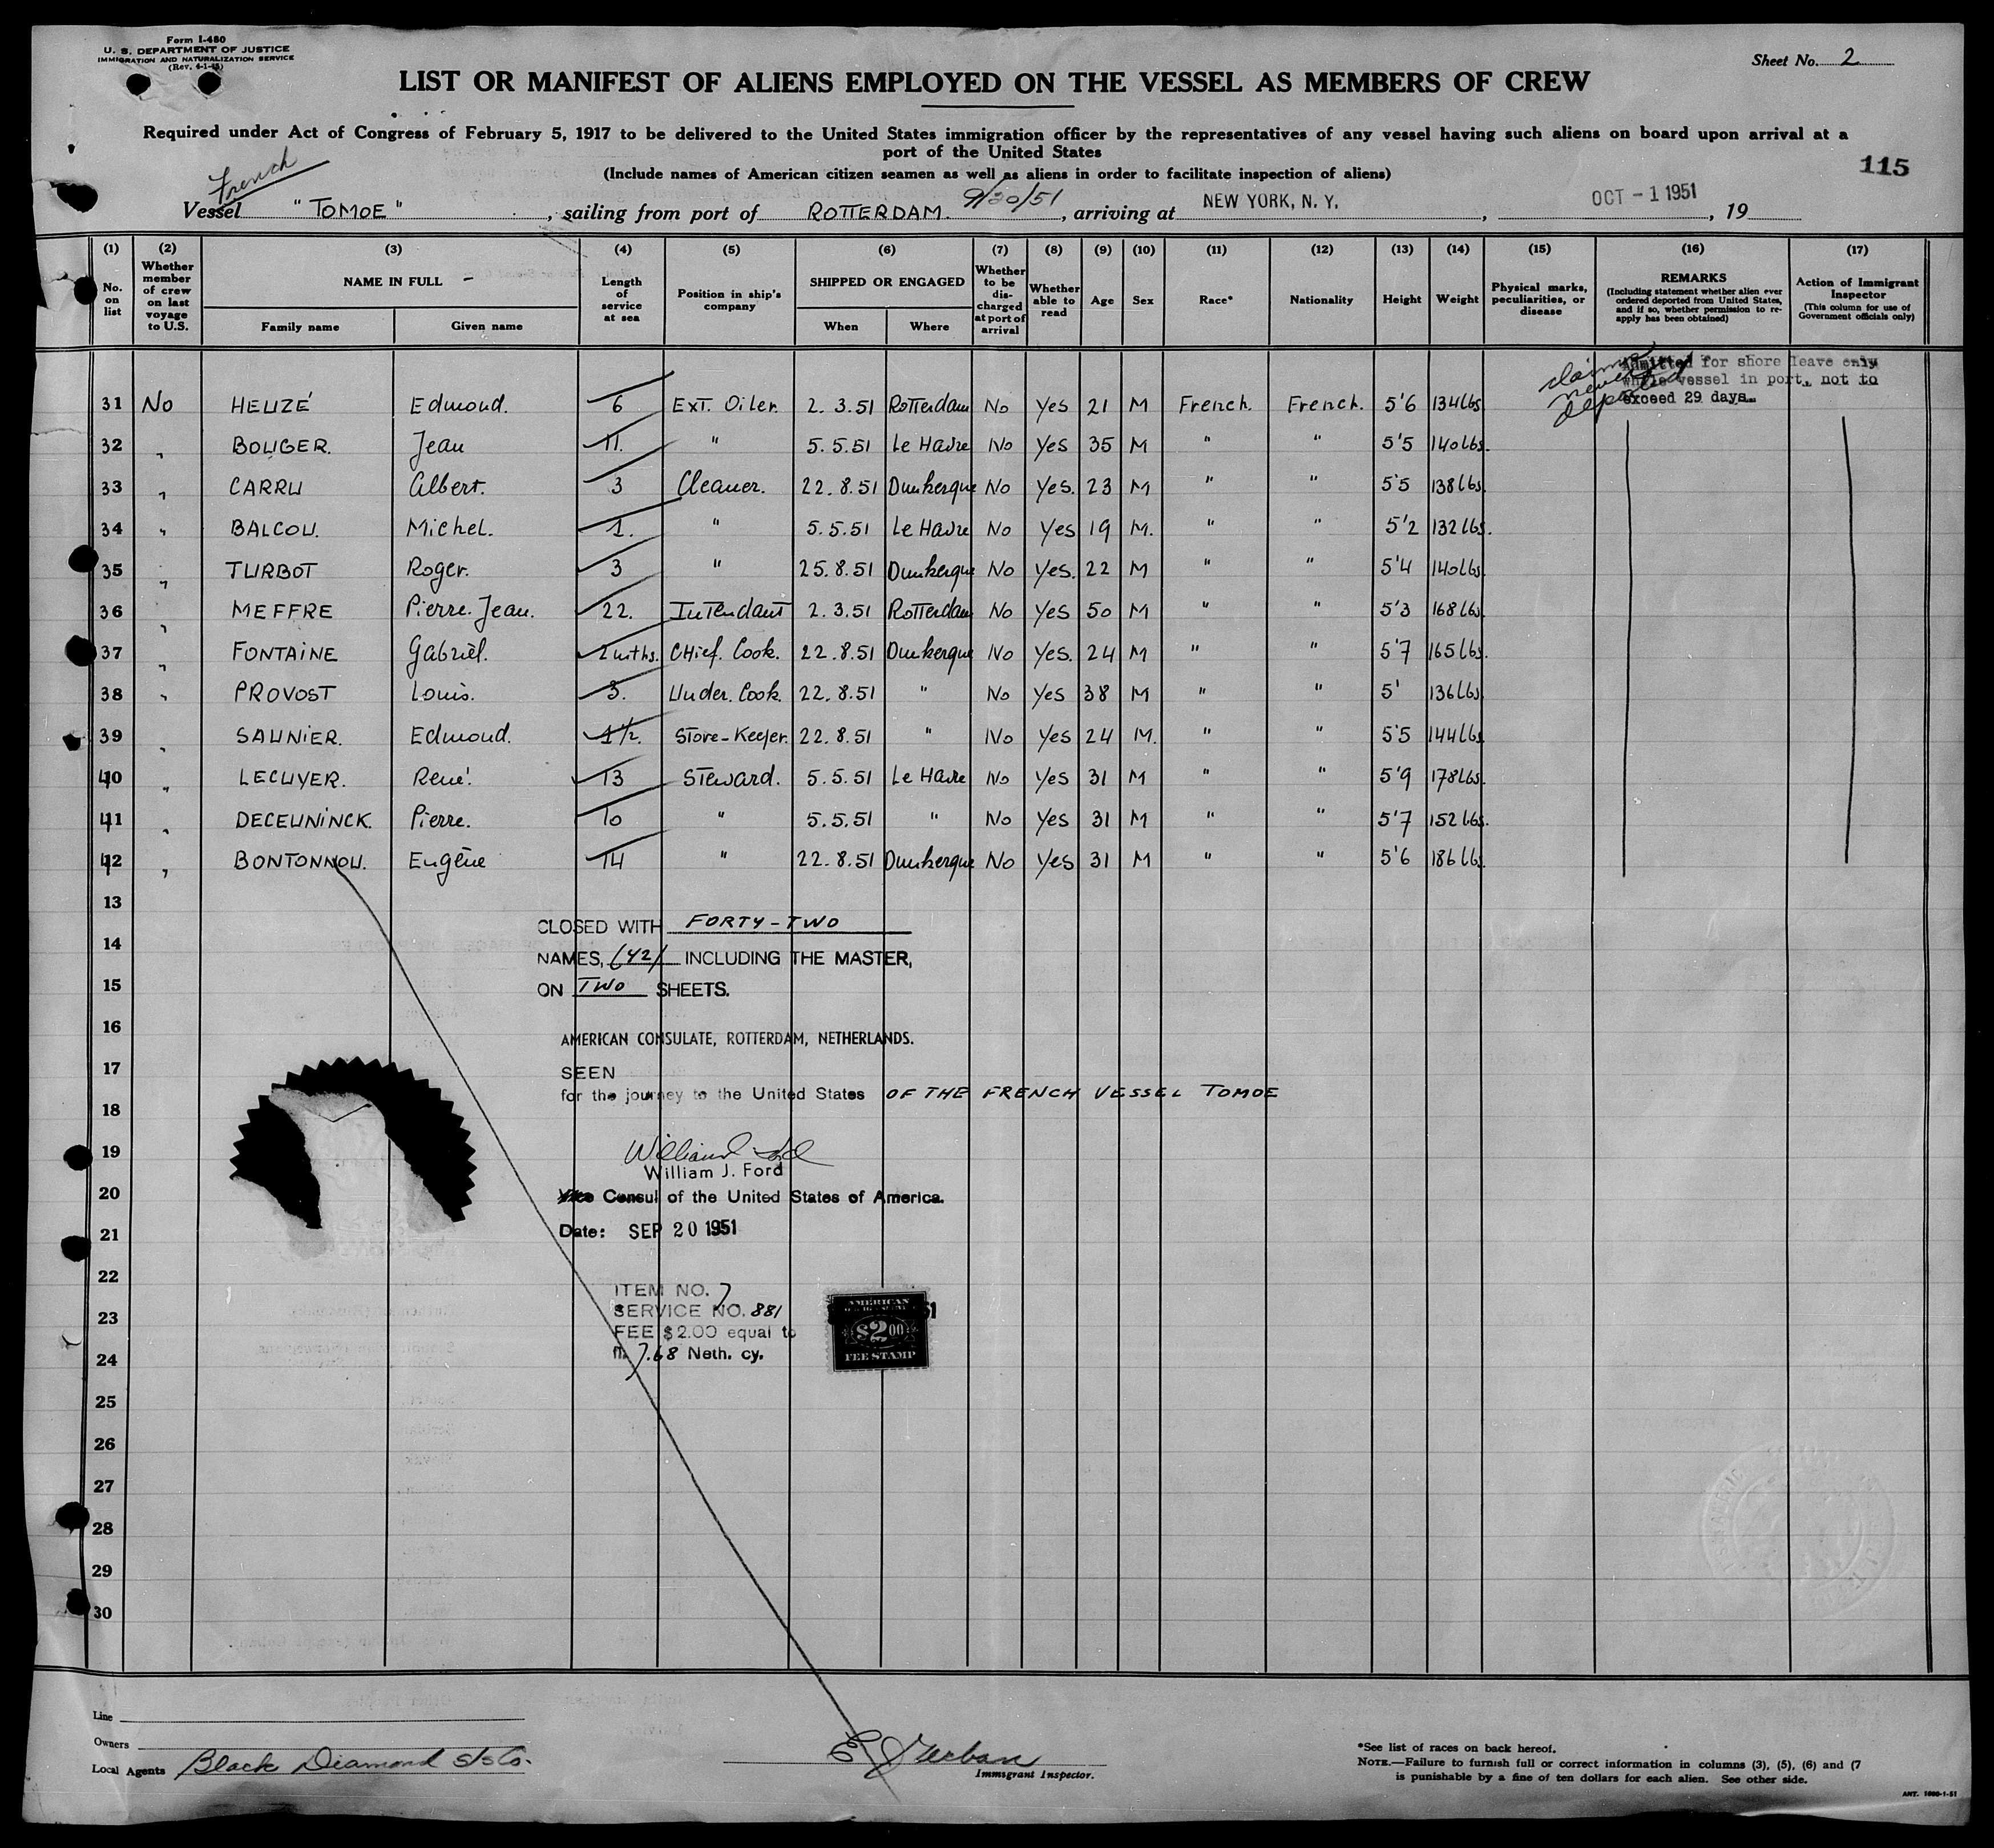 Form I-480
U. S. DEPARTMENT OF JUSTICE
IMMIGRATION AND NATURALIZATION SERVICE
(Rev. 4-1-45)
Sheet No. 2
LIST OR MANIFEST OF ALIENS EMPLOYED ON THE VESSEL AS MEMBERS OF CREW
Required under Act of Congress of February 5, 1917 to be delivered to the United States immigration officer by the representatives of any vessel having such aliens on board upon arrival at a
port of the United States
(Include names of American citizen seamen as well as aliens in order to facilitate inspection of aliens)
115
French
Vessel "TOMOE", sailing from port of ROTTERDAM. 9/20/51, arriving at NEW YORK, N. Y., OCT - 1 1951, 19
(1) (2) (3) (4) (5) (6) (7) (8) (9) (10) (11) (12) (13) (14) (15) (16) (17)
No. on list
Whether member of crew on last voyage to U.S.
NAME IN FULL -
Family name Given name
Length of service at sea
Position in ship's company
SHIPPED OR ENGAGED
When Where
Whether to be discharged at port of arrival
Whether able to read
Age
Sex
Race*
Nationality
Height
Weight
Physical marks, peculiarities, or disease
REMARKS
(Including statement whether alien ever ordered deported from United States, and if so, whether permission to re-apply has been obtained)
Action of Immigrant Inspector
(This column for use of Government officials only)
claims never deported
Admitted for shore leave only
while vessel in port, not to
exceed 29 days.
31 No HEUZÉ Edmond. 6 Ext. Oiler. 2.3.51 Rotterdam No Yes 21 M French. French. 5'6 134lbs
32 " BOUGER. Jean 11. " 5.5.51 Le Havre No Yes 35 M " " 5'5 140lbs.
33 " CARRU Albert. 3 Cleaner. 22.8.51 Dunkerque No Yes. 23 M " " 5'5 138lbs.
34 " BALCOU. Michel. 1. " 5.5.51 Le Havre No Yes 19 M. " " 5'2 132lbs.
35 " TURBOT Roger. 3 " 25.8.51 Dunkerque No Yes. 22 M " " 5'4 140lbs.
36 " MEFFRE Pierre.Jean. 22. Intendant 2.3.51 Rotterdam No Yes 50 M " " 5'3 168lbs.
37 " FONTAINE Gabriel. 2 mths. Chief. Cook. 22.8.51 Dunkerque No Yes. 24 M " " 5'7 165lbs.
38 " PROVOST Louis. 3. Under. Cook. 22.8.51 " No Yes 38 M " " 5' 136lbs
39 " SAUNIER. Edmond. 1 1/2. Store-Keeper. 22.8.51 " No Yes 24 M. " " 5'5 144lbs
40 " LECUYER. René. 13 Steward. 5.5.51 Le Havre No Yes 31 M " " 5'9 178lbs.
41 " DECEUNINCK. Pierre. 10 " 5.5.51 " No Yes 31 M " " 5'7 152lbs.
42 " BONTONNOU. Eugène 14 " 22.8.51 Dunkerque No Yes 31 M " " 5'6 186lbs.
13
CLOSED WITH FORTY-TWO
14
NAMES, (42) INCLUDING THE MASTER,
15
ON TWO SHEETS.
16
AMERICAN CONSULATE, ROTTERDAM, NETHERLANDS.
17
SEEN
for the journey to the United States OF THE FRENCH VESSEL TOMOE
18
19
William J. Ford
William J. Ford
20
Vice Consul of the United States of America.
21
Date: SEP 20 1951
22
ITEM NO. 7
SERVICE NO. 881
23
FEE $2.00 equal to
fl. 7.68 Neth. cy.
AMERICAN
$2.00
FEE STAMP
24
25
26
27
28
29
30
Line
Owners
Local Agents Black Diamond S/S Co.
Immigrant Inspector.
*See list of races on back hereof.
NOTE.—Failure to furnish full or correct information in columns (3), (5), (6) and (7
is punishable by a fine of ten dollars for each alien. See other side.